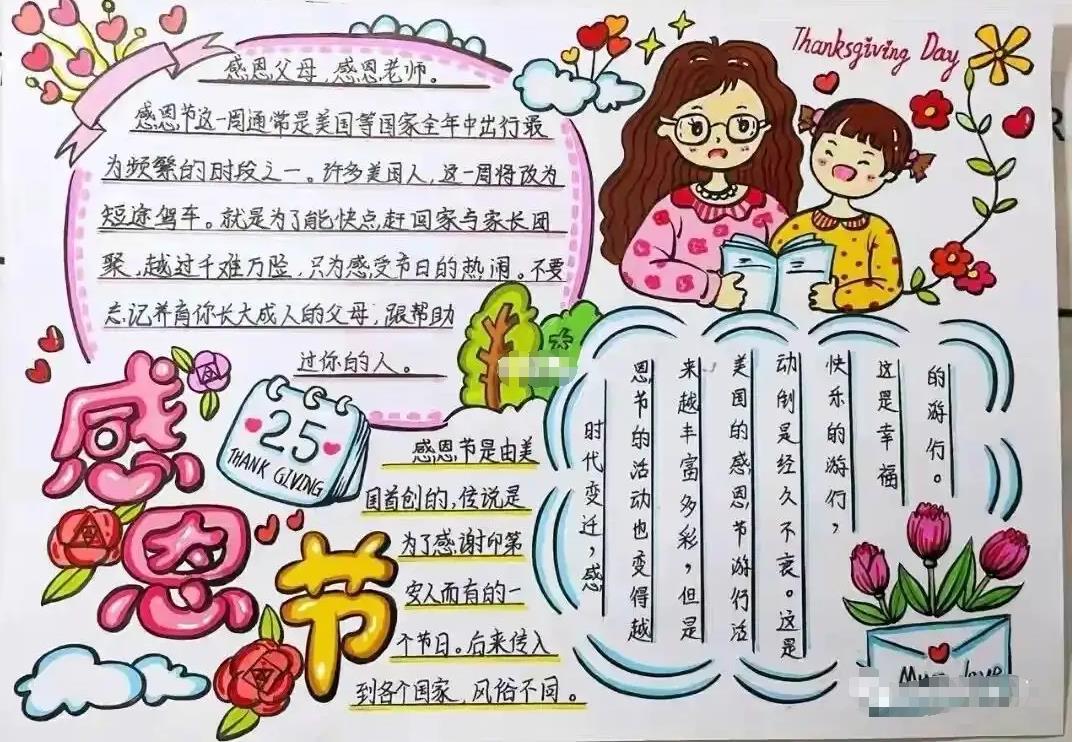 Thanksgiving Day
感恩父母,感恩老师。
感恩节这一周通常是美国等国家全年中出行最
为频繁的时段之一。许多美国人,这一周将改为
短途驾车。就是为了能快点赶回家与家长团
聚,越过千难万险,只为感受节日的热闹。不要
忘记养育你长大成人的父母,跟帮助
过你的人。
感恩节
25
THANK GIVING
感恩节是由美
国首创的,传说是
为了感谢印第
安人而有的一
个节日。后来传入
到各个国家,风俗不同。
时代变迁,感
恩节的活动也变得越
来越丰富多彩,但是
美国的感恩节游行活
动倒是经久不衰。这是
快乐的游行,
这是幸福
的游行。